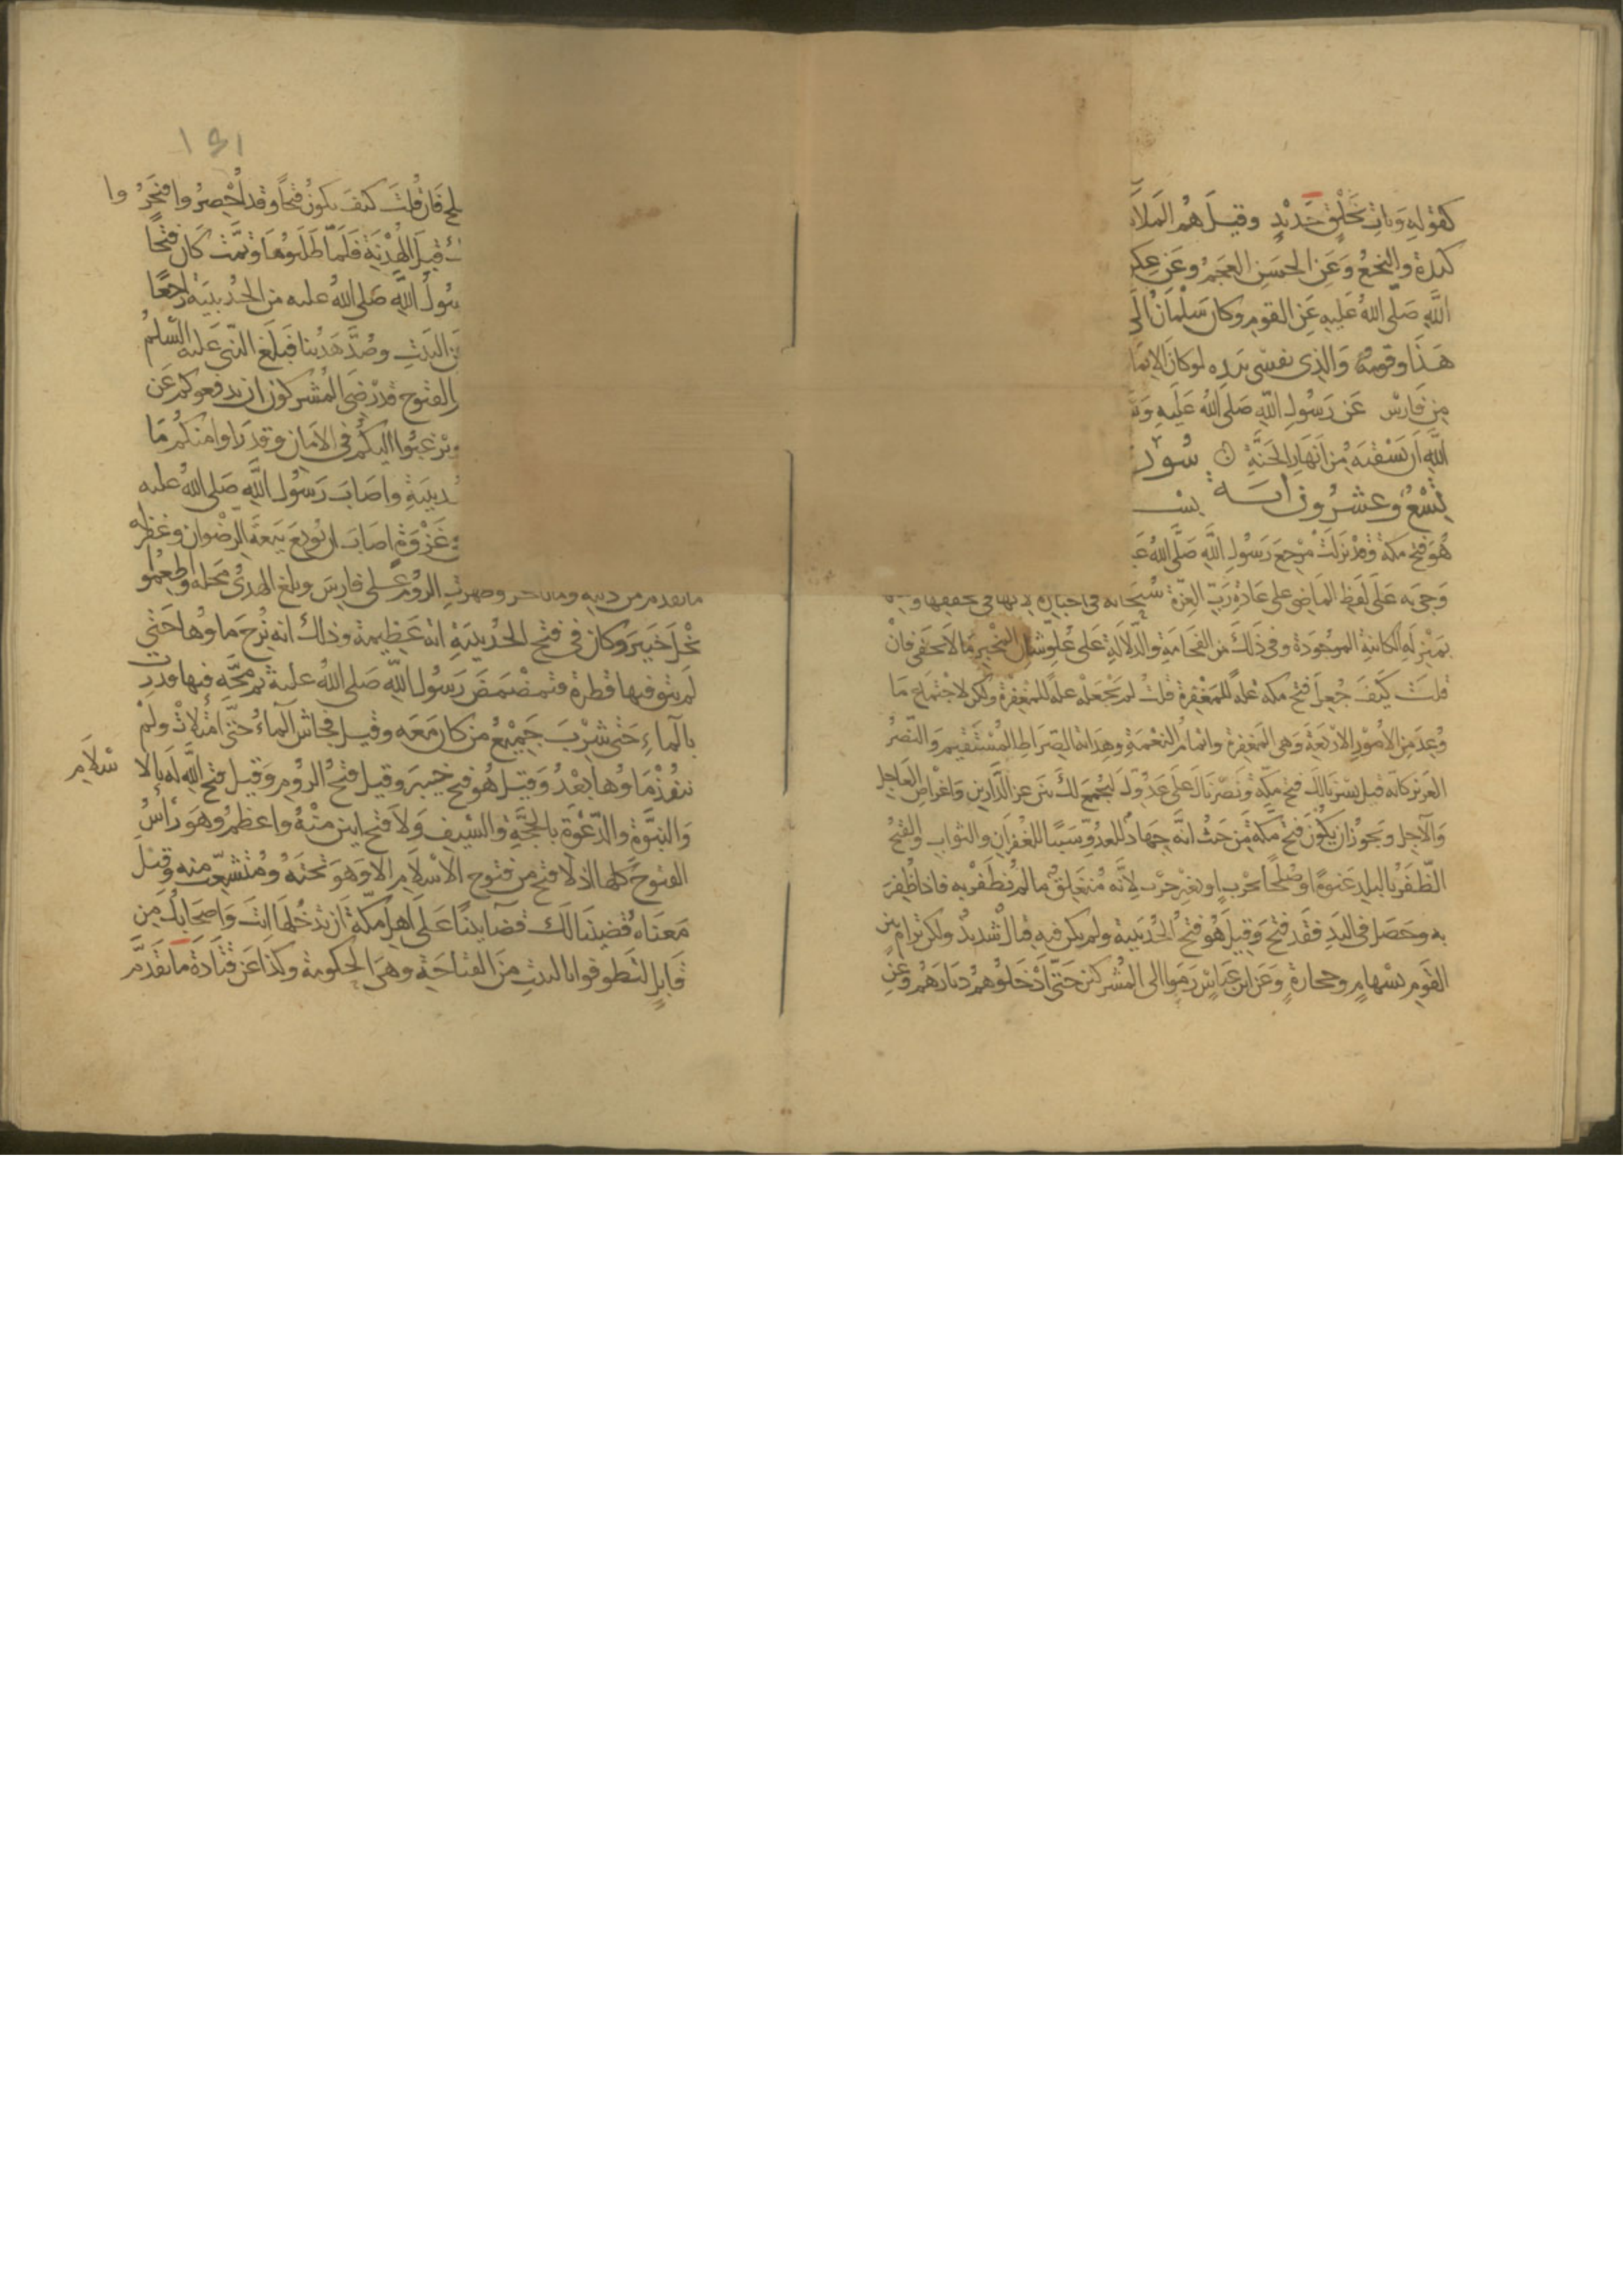 كقوله ويات بخلق جديد وقيل هم الملا
كندة والنخع وعن الحسن العجم وعن عكر
الله صلى الله عليه عن القوم وكان سلمان الى
هذا وقومه والذي نفسي بيده لو كان الايما
من فارس عن رسول الله صلى الله عليه وس
الله ان يسقيه من انهار الجنة سور
تسع وعشرون اية بس
هو فتح مكة وقد نزلت مرجع رسول الله صلى الله ع
وجئ به على لفظ الماضي على عادة رب العزة سبحانه في اخباره لانها في تحققها
بمنزلة الكائنة الموجودة وفي ذلك من الفخامة والدلالة على علو شان المخبر ما لا يخفى فان
قلت كيف جعل فتح مكة علة للمغفرة قلت لم يجعله علة للمغفرة ولكن لاجتماع ما
وعد من الامور الاربعة وهي المغفرة واتمام النعمة وهداية الصراط المستقيم والنصر
العزيز كانه قيل يسرنا لك فتح مكة ونصرناك على عدوك لنجمع لك بين عز الدارين واغراض العاجل
والآجل ويجوز ان يكون فتح مكة من حيث انه جهاد للعدو سببا للغفران والثواب والفتح
الظفر بالبلد عنوة او صلحا بحرب او بغير حرب لانه منغلق ما لم يظفر به فاذا ظفر
به وحصل في اليد فقد فتح وقيل هو فتح الحديبية ولم يكن فيه قتال شديد ولكن ترام بين
القوم بسهام وحجارة وعن ابن عباس رموا الى المشركين حتى ادخلوهم ديارهم وعن
١٤١
لح فان قلت كيف يكون فتحا وقد احصروا فنحروا
قيل الهدنة فلما طلبوها وتمت كان فتحا
سول الله صلى الله عليه من الحديبية راجعا
ن البيت وصد هدينا فبلغ النبي عليه السلم
الفتوح قد رضي المشركون ان يدفعوكم عن
ويرغبوا اليكم في الامان وقد راوا منكم ما
ديبية واصاب رسول الله صلى الله عليه
غزوة اصاب ان بويع بيعة الرضوان وغفر له
ما تقدم من ذنبه وما تاخر وظهرت الروم على فارس وبلغ الهدى محله واطعموا
نخل خيبر وكان في فتح الحديبية اية عظيمة وذلك انه نزح ماوها حتى
لم يبق فيها قطرة فتمضمض رسول الله صلى الله عليه ثم مجه فيها فدرت
بالماء حتى شرب جميع من كان معه وقيل فجاش الماء حتى امتلات ولم
ينفد ماوها بعد وقيل هو فتح خيبر وقيل فتح الروم وقيل فتح الله له بالاسلام
والنبوة والدعوة بالحجة والسيف ولا فتح ابين منه واعظم وهو راس
الفتوح كلها اذ لا فتح من فتوح الاسلام الا وهو تحته ومتشعب منه وقيل
معناه قضينا لك قضا بينا على اهل مكة ان تدخلها انت واصحابك من
قابل لتطوفوا بالبيت من الفتاحة وهي الحكومة وكذا عن قتادة ما تقدم